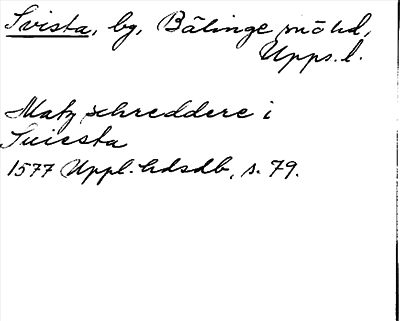 Svista, by, Bälinge snöhd,
Upps.l.
Matz schreddere i
Suiesta
1577 Uppl. hdsdb, s. 79.